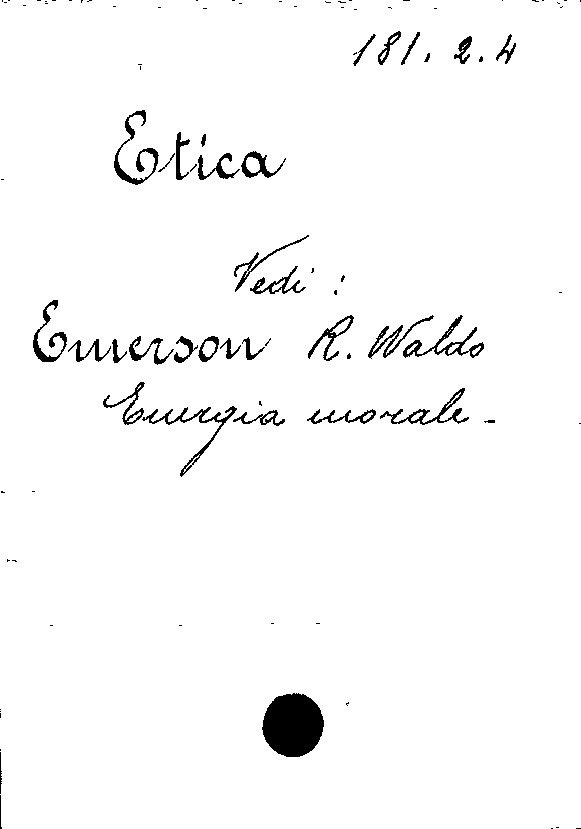 181. 2. 4
Etica
Vedi :
Emerson R. Waldo
Energia morale -